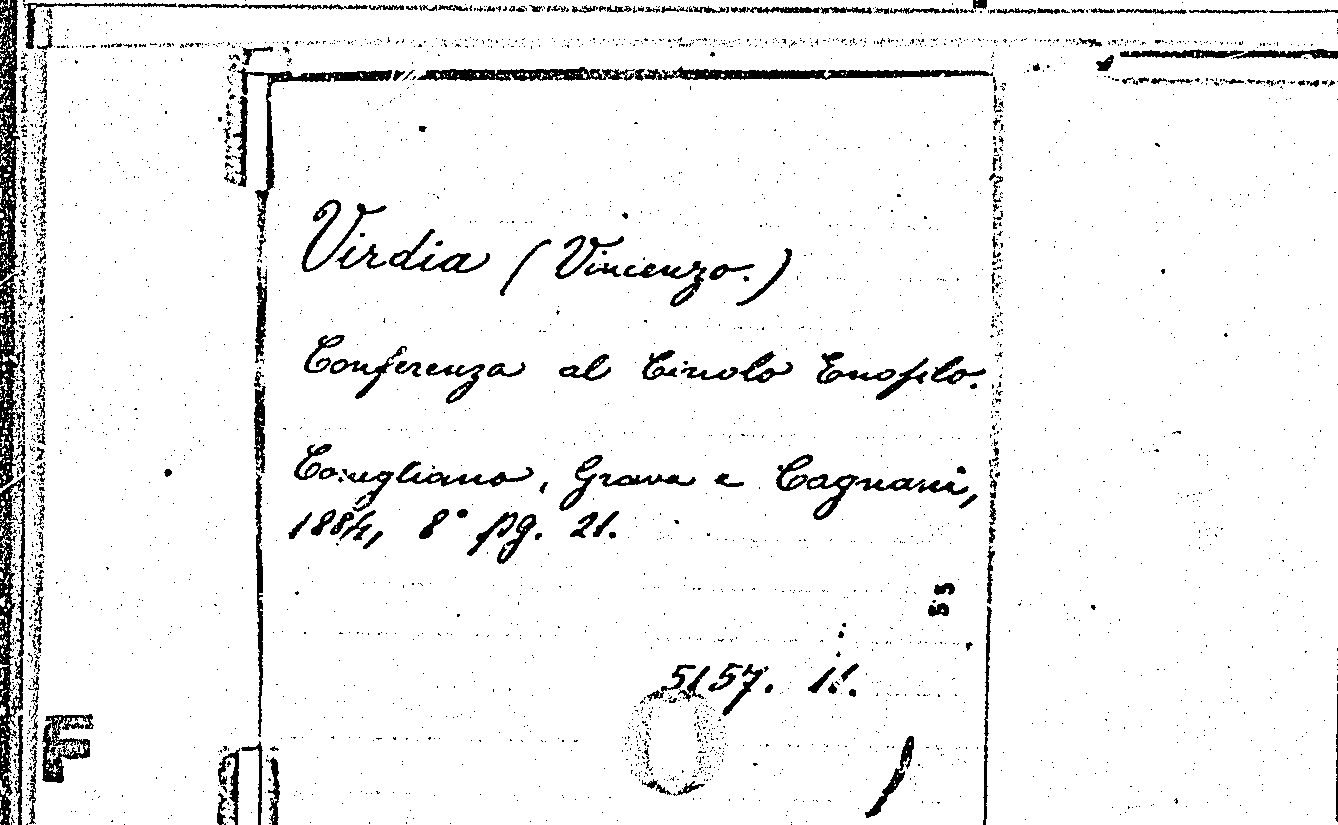 Virdia (Vincenzo.)
Conferenza al Circolo Enofilo.
Conegliano, Grava e Cagnani,
1884, 8° pg. 21.
55
5157. 11.
F